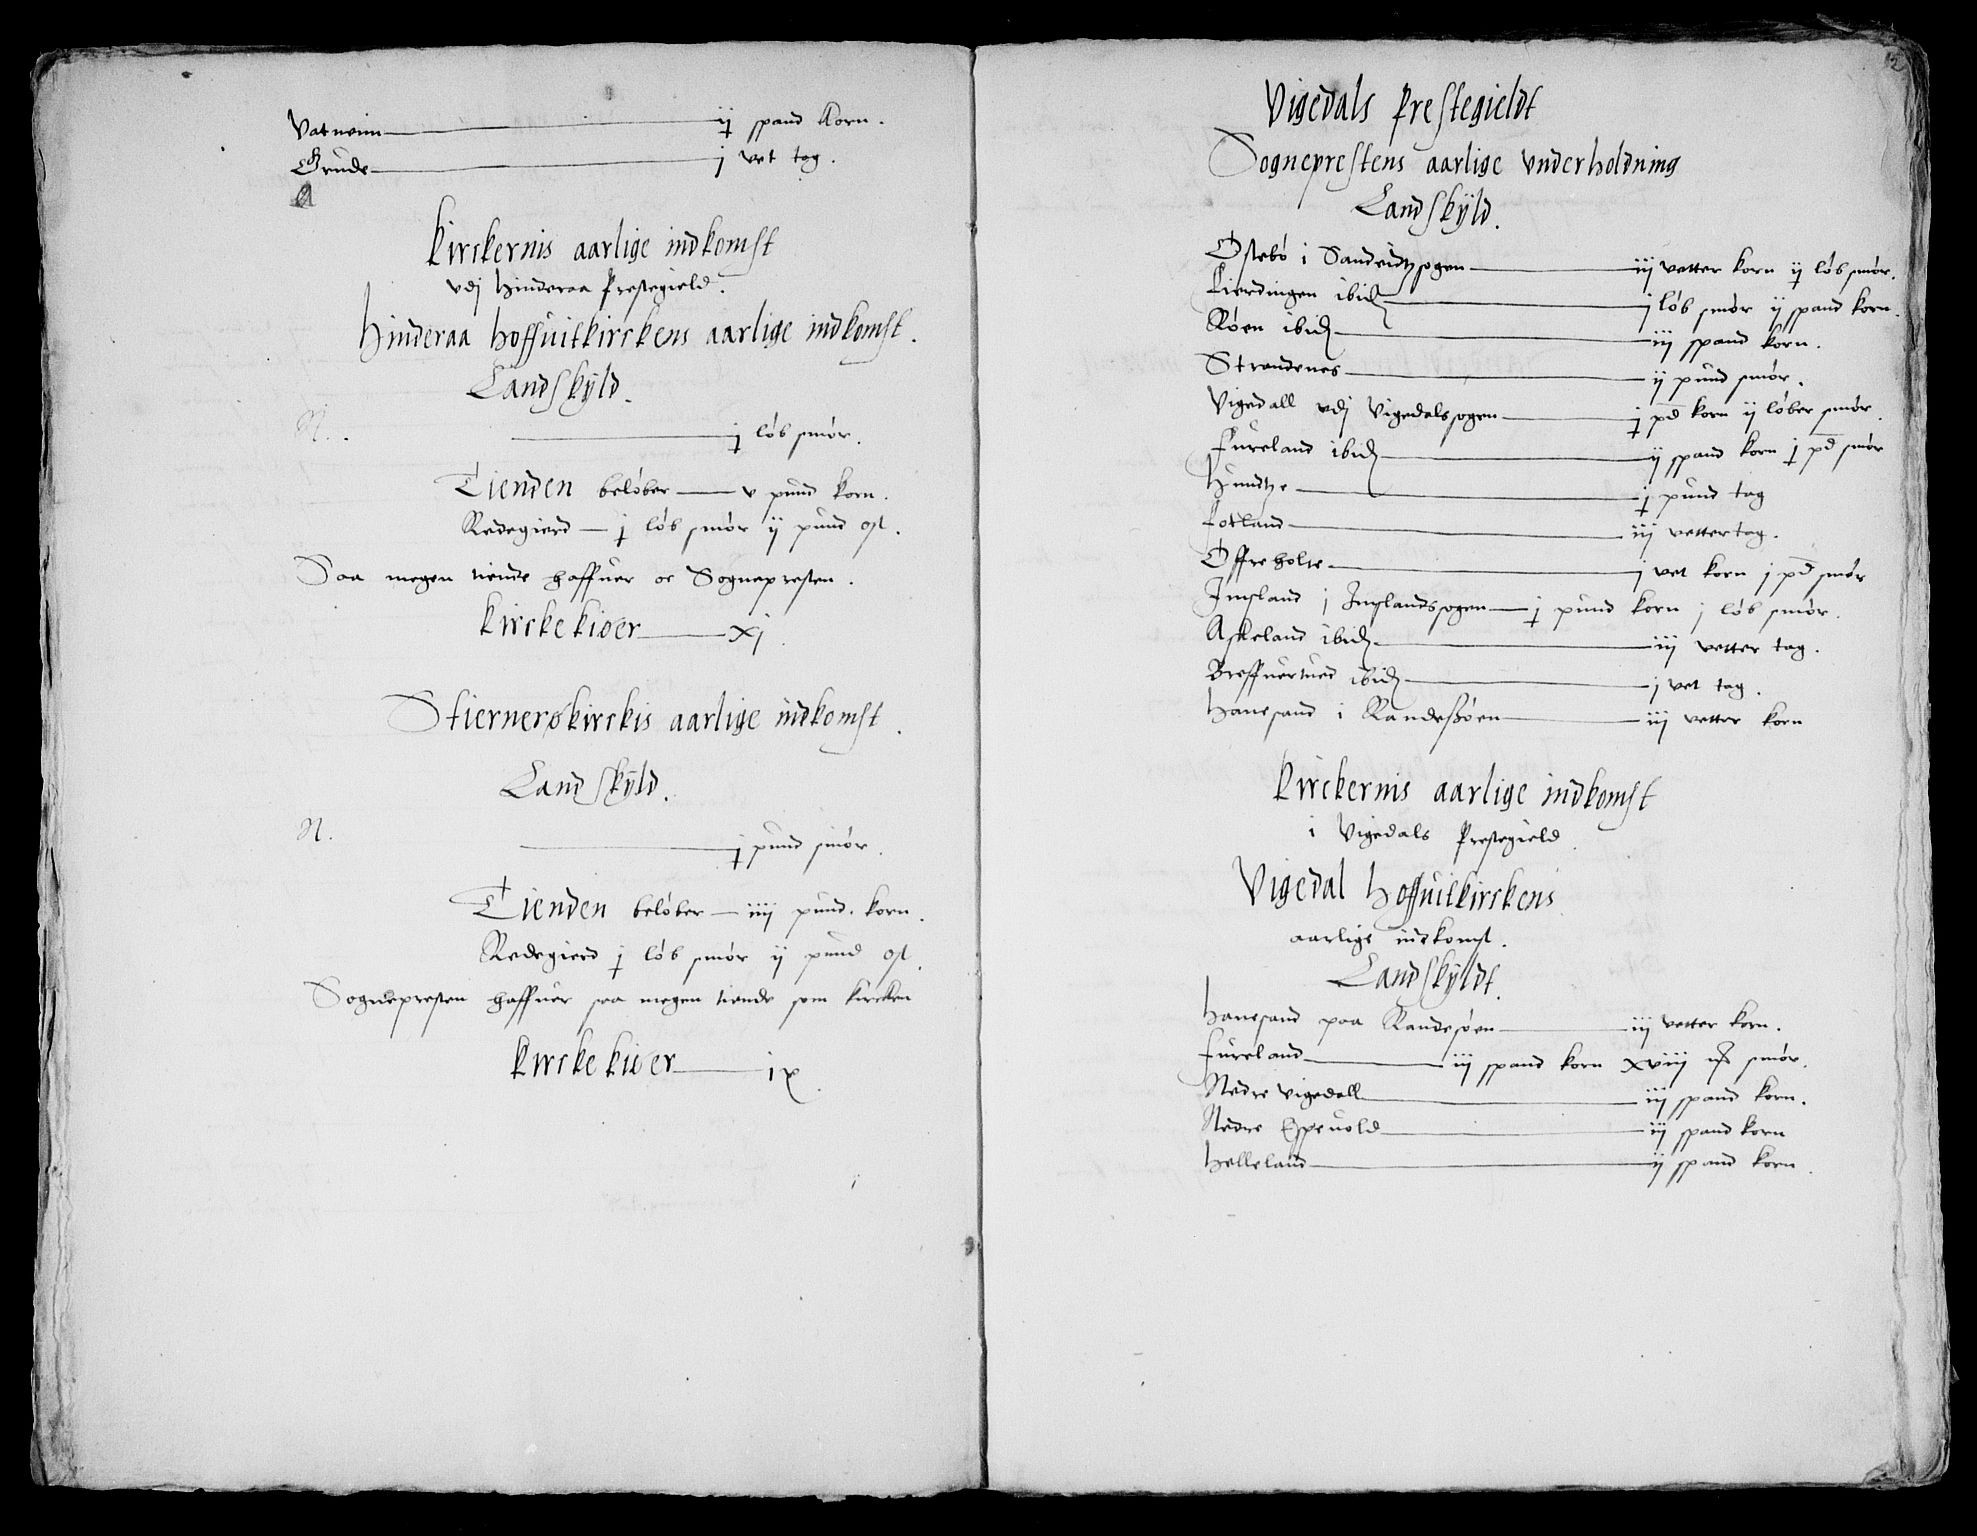 Vatneim ij spand korn.
Grude j vet tag.
Kirckernis aarlige indkomst
vdj Hinderaa Prestegield.
Hinderaa Hoffuitkirckens aarlige indkomst.
Landskÿld.
N. j løb smør.
Tienden beløber v pund korn.
Redegierd j løb smør ij pund ost.
Saa megen tiende haffuer oc Sognepresten.
Kircke kiøer xj.
Stiernerøkirckis aarlige indkomst.
Landskÿld.
N. j pund smør.
Tienden beløber iiij pund korn.
Redegierd j løb smør ij pund ost.
Sognepresten haffuer saa megen tiende som kircken
Kircke kiøer ix.
12
Vigedals Prestegieldt
Sogneprestens aarlige vnderholdning
Landskÿld.
Østebø i Sandeidtzsogen iij vetter korn ij løb smør.
Fierdingen ibid. j løb smør ij spand korn.
Røen ibid. iij spand korn.
Strandenes ij pund smør.
Vigedall vdj Vigedalssogen j pd korn ij løber smør.
Fureland ibid. ij spand korn j pd smør
Hundtze j pund tag
Fotland iij vetter tag.
Offreholte j vet korn j pd smør
Imsland j Imslandssogen j pund korn j løb smør.
Askeland ibid. iij vetter tag.
Breffuertued ibid. j vet tag.
Hanesand i Randessøen iij vetter korn
Kirckernis aarlige indkomst
i Vigedals Prestegield.
Vigedal Hoffuitkirckens
aarlige indkomst.
Landskÿldt.
Hanesand paa Randesøen iij vetter korn.
Fureland iij spand korn xviij smør.
Nedre Vigedall iij spand korn.
Nedre Espeuold iij spand korn
Helleland ij spand korn.